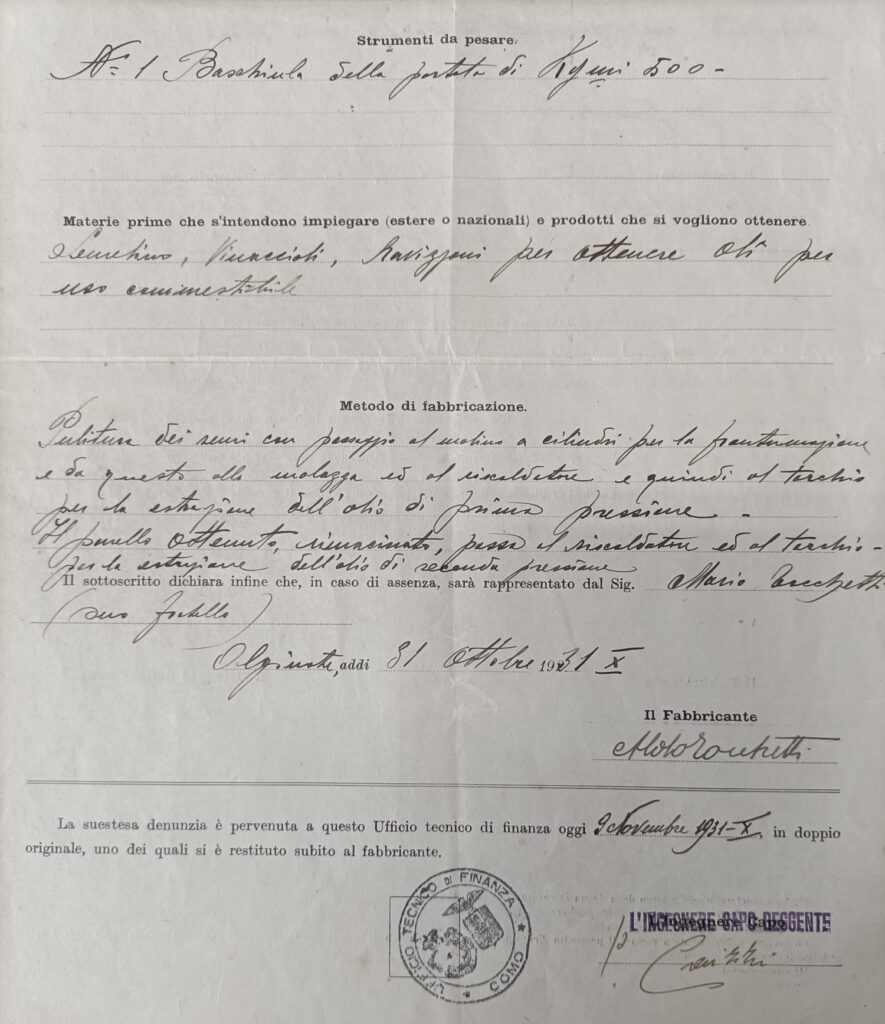 Strumenti da pesare.
N.° 1 Baschiula della portata di Kgmi 500 -
Materie prime che s'intendono impiegare (estere o nazionali) e prodotti che si vogliono ottenere.
Semelino, Vinaccioli, Ravizzoni per ottenere oli per
uso commestibile
Metodo di fabbricazione.
Pulitura dei semi con passaggio al molino a cilindri per la frantumazione
e da questo alla molazza ed al riscaldatore e quindi al torchio
per la estrazione dell'olio di prima pressione -
Il panello ottenuto, rimacinato, passa al riscaldatore ed al torchio -
per la estrazione dell'olio di seconda pressione
Il sottoscritto dichiara infine che, in caso di assenza, sarà rappresentato dal Sig. Mario
(suo fratello)
Olginate, addì 31 Ottobre 1931 X
Il Fabbricante
Aldo
La suestesa denunzia è pervenuta a questo Ufficio tecnico di finanza oggi 9 Novembre 1931-X, in doppio
originale, uno dei quali si è restituto subito al fabbricante.
UFFICIO TECNICO DI FINANZA * COMO *
L'INGEGNERE CAPO REGGENTE